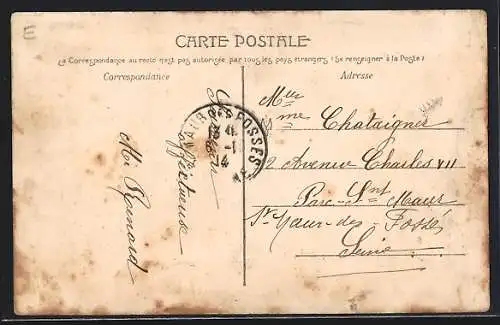 E
CARTE POSTALE
La Correspondance au recto n'est pas autorisée par tous les pays étrangers (Se renseigner à la Poste)
Correspondance
Adresse
affectueuse
M. Renard
FOSSÉS
Mme Chataigner
2 Avenue Charles VII
Parc St Maur
St Maur-des-Fossés
Seine